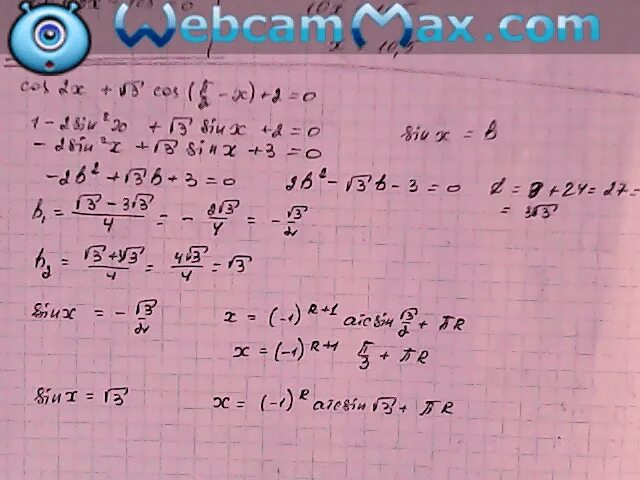 WebcamMax.com
cos 2x + √3 cos(π/2 - x) + 2 = 0
1 - 2sin²x + √3 sinx + 2 = 0
sinx = b
- 2sin²x + √3 sinx + 3 = 0
-2b² + √3 b + 3 = 0
2b² - √3 b - 3 = 0
b₁ = (√3 - 3√3)/4 = - 2√3/4 = - √3/2
= 3√3
b₂ = (√3 + 3√3)/4 = 4√3/4 = √3
sinx = - √3/2
x = (-1)^(k+1) arcsin √3/2 + πk
x = (-1)^(k+1) π/3 + πk
sinx = √3
x = (-1)^k arcsin √3 + πk